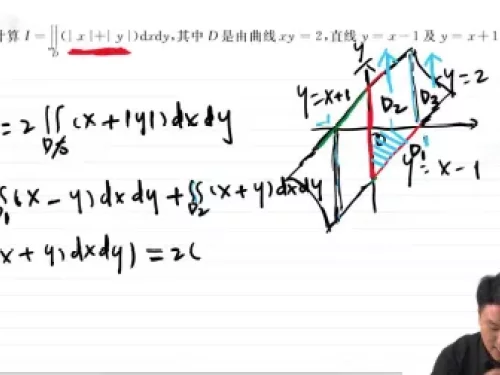 计算 I = ∬_D (|x|+|y|)dxdy,其中 D 是由曲线 xy = 2,直线 y = x − 1 及 y = x + 1
= 2 ∬ (x + |y|) dxdy
∬_{D₁} (x − y) dxdy + ∬_{D₂} (x + y) dxdy
x + y) dxdy) = 2(
y
y = x+1
D₂
D₃
y = 2
-1
0
D₁
1
y = x − 1